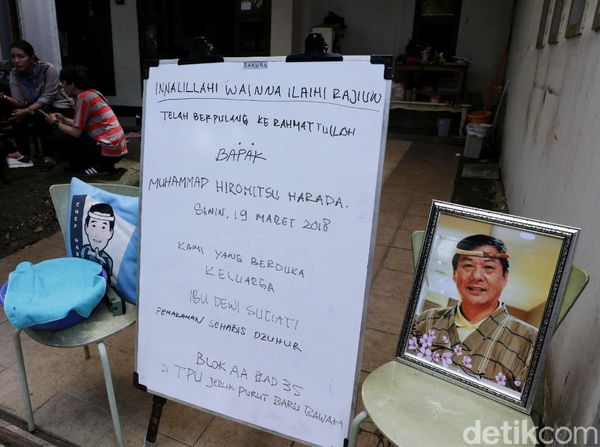 SAKURA
INNALILLAHI WAINNA ILAIHI RAJIUN
TELAH BERPULANG KE RAHMATTULLOH
BAPAK
MUHAMMAD HIROMITSU HARADA.
SENIN, 19 MARET 2018
KAMI YANG BERDUKA
KELUARGA
IBU DEWI SUDIATI
PEMAKAMAN SEHABIS DZUHUR
BLOK AA BAD 35
DI TPU JERUK PURUT BARU BAWAH
CHEF HA
detikcom